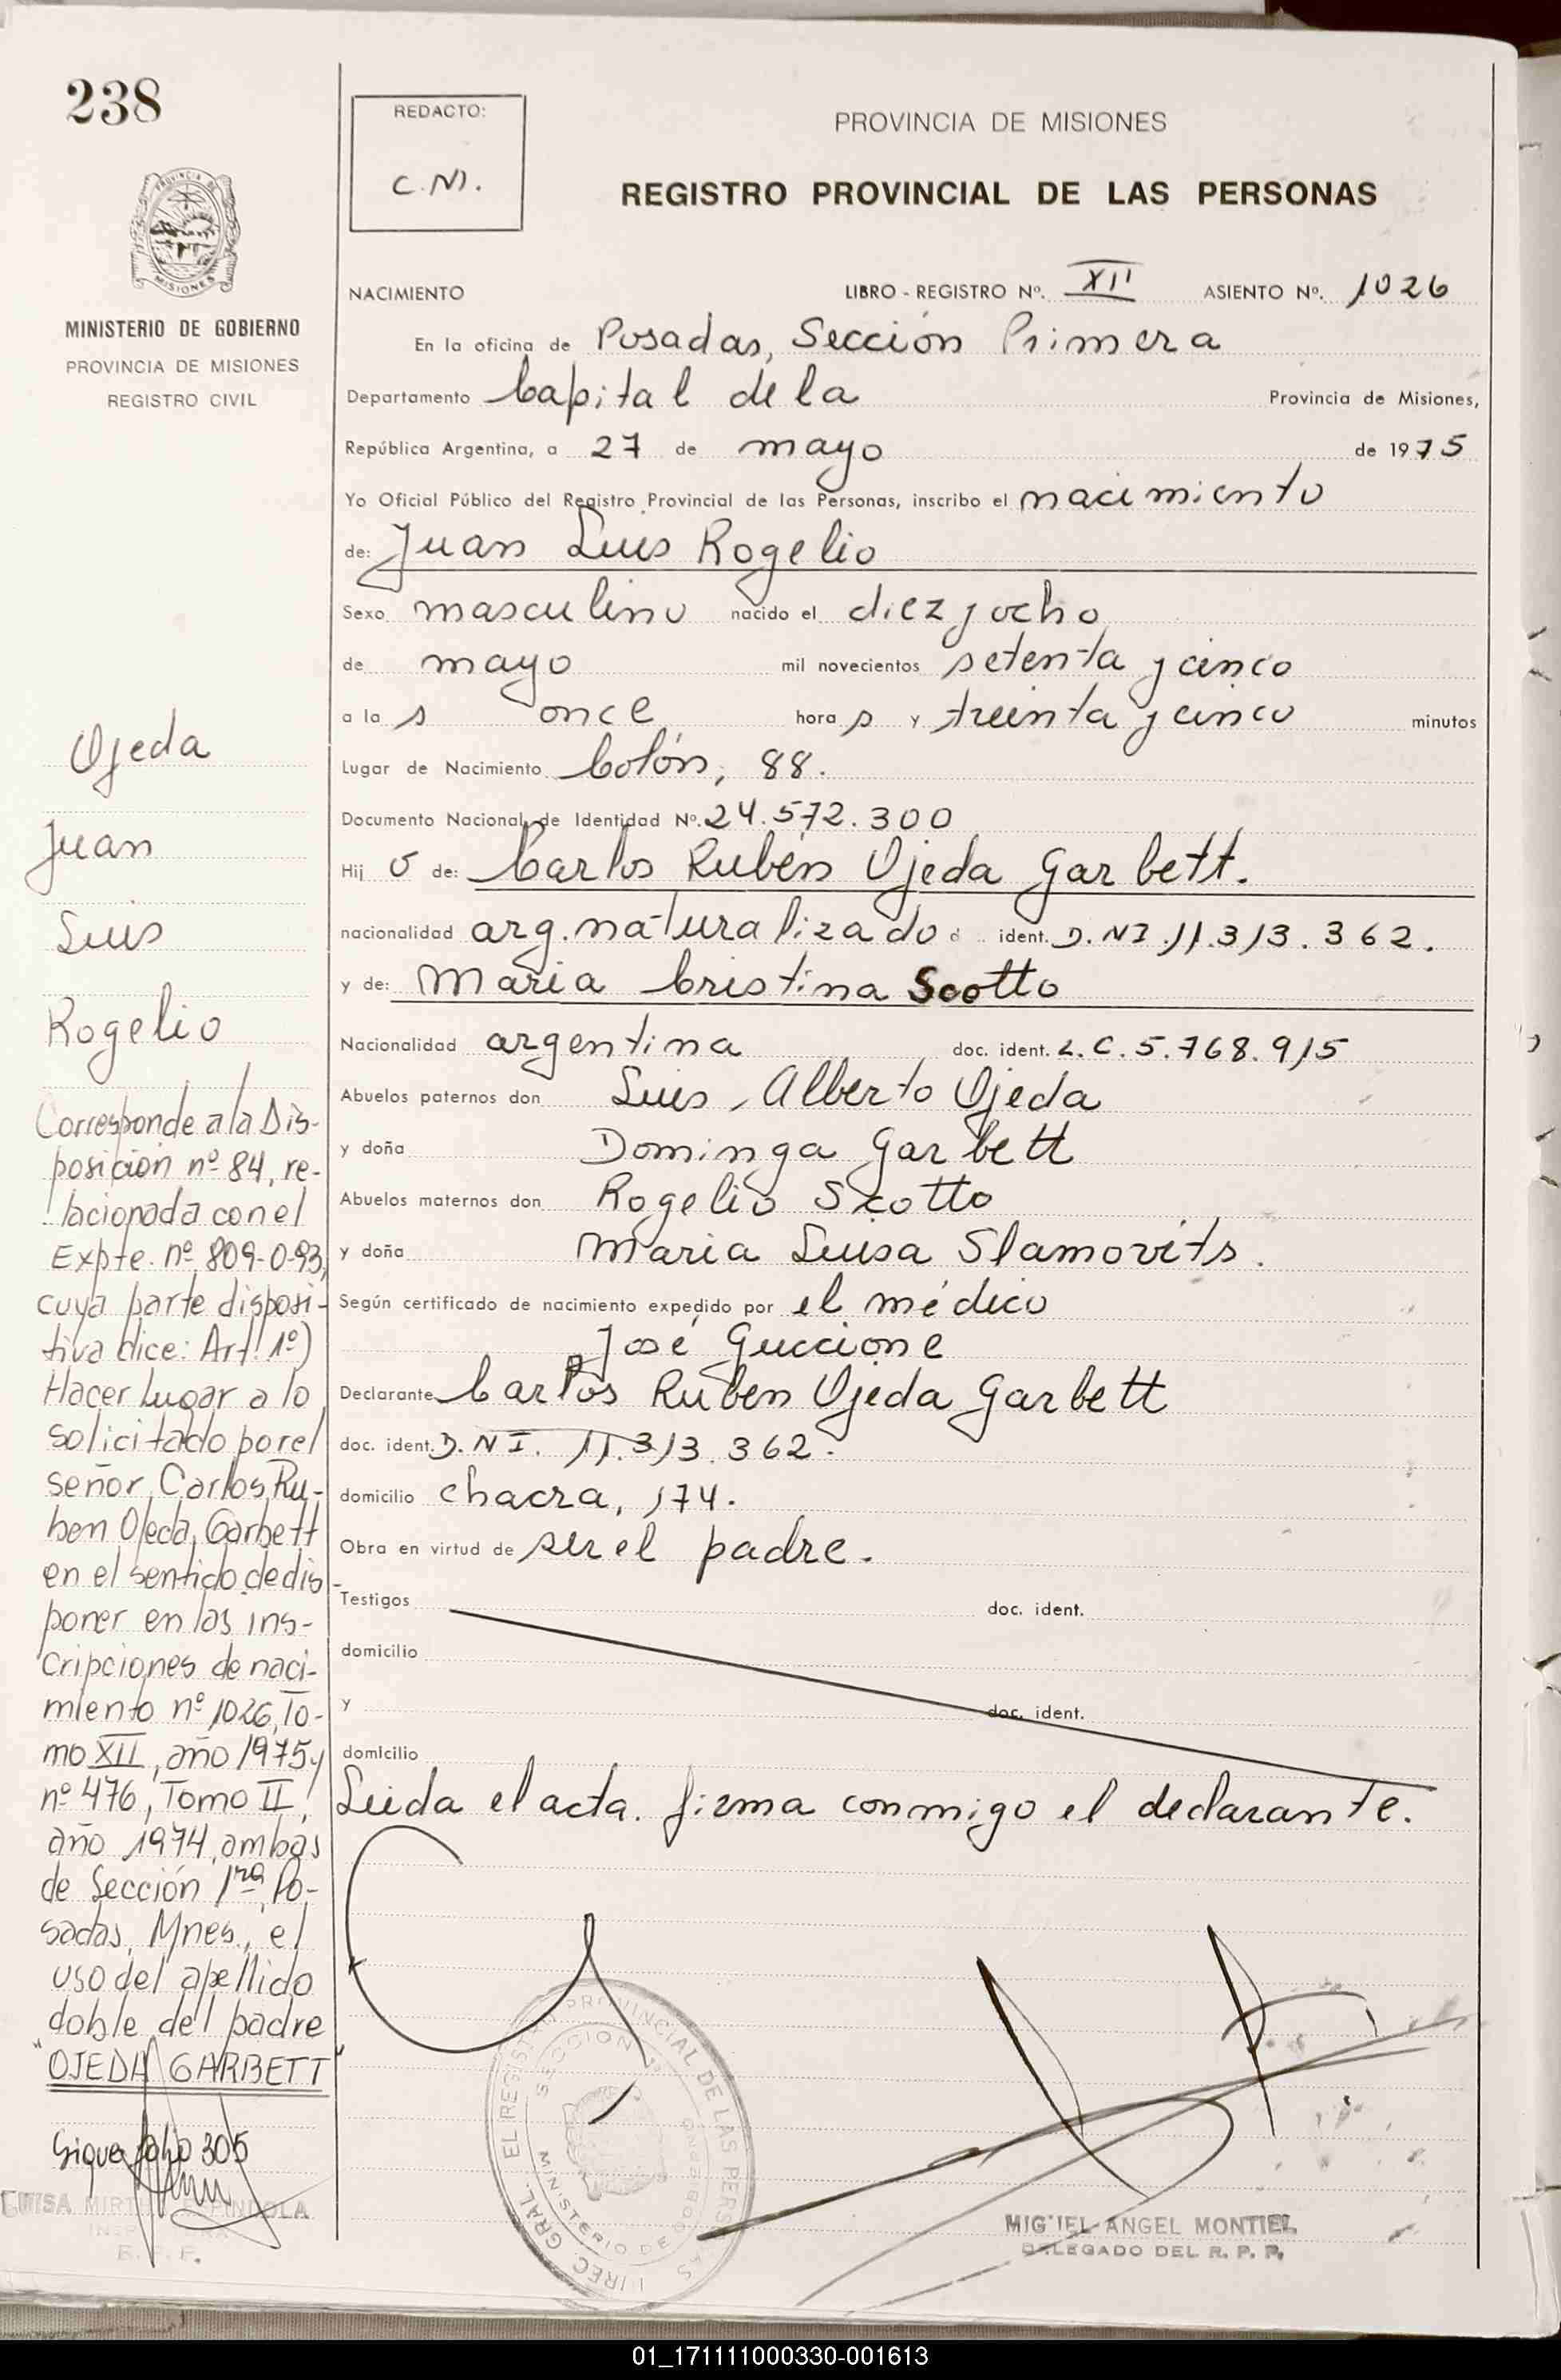 238
PROVINCIA DE
MISIONES
MINISTERIO DE GOBIERNO
PROVINCIA DE MISIONES
REGISTRO CIVIL
REDACTO:
C.N.
PROVINCIA DE MISIONES
REGISTRO PROVINCIAL DE LAS PERSONAS
NACIMIENTO LIBRO - REGISTRO Nº. XII ASIENTO Nº. 1026
En la oficina de Posadas, Sección Primera
Departamento Capital de la Provincia de Misiones,
República Argentina, a 27 de mayo de 1975
Yo Oficial Público del Registro Provincial de las Personas, inscribo el nacimiento
de: Juan Luis Rogelio
Sexo masculino nacido el diez y ocho
de mayo mil novecientos setenta y cinco
a la s once hora s y treinta y cinco minutos
Lugar de Nacimiento Colón, 88.
Documento Nacional de Identidad Nº. 24.572.300
Hij o de: Carlos Rubén Ojeda Garbett.
nacionalidad arg. naturalizado d ident. D.NI.11.313.362.
y de: Maria Cristina Scotto
Nacionalidad argentina doc. ident. L.C.5.768.915
Abuelos paternos don Luis, Alberto Ojeda
y doña Dominga Garbett
Abuelos maternos don Rogelio Scotto
y doña Maria Luisa Slamovits.
Según certificado de nacimiento expedido por el médico
José Guccione
Declarante Carlos Rubén Ojeda Garbett
doc. ident. D.NI. 11.313.362.
domicilio chacra, 174.
Obra en virtud de ser el padre.
Testigos doc. ident.
domicilio
y doc. ident.
domicilio
Leida el acta. firma conmigo el declarante.
Ojeda
Juan
Luis
Rogelio
Corresponde a la Dis-
posición nº 84, re-
lacionada con el
Expte. nº 809-0-93,
cuya parte disposi-
tiva dice: Art. 1º)
Hacer lugar a lo
solicitado por el
señor Carlos Ru-
ben Ojeda Garbett
en el sentido de dis-
poner en las ins-
cripciones de naci-
miento nº 1026, To-
mo XII, año 1975 y
nº 476, Tomo II,
año 1974, ambas
de Sección 1ra, Po-
sadas, Mnes., el
uso del apellido
doble del padre
"OJEDA GARBETT"
Sigue folio 305
MIGUEL ANGEL MONTIEL
DELEGADO DEL R. P. P.
01_171111000330-001613